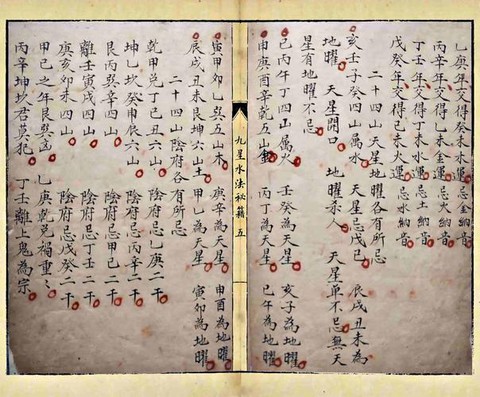 乙庚年交得癸未水運 忌金納音
丙辛年交得乙未金運 忌火納音
丁壬年交得丁未水運 忌土納音
戊癸年交得己未火運 忌水納音
二十四山 天星地曜各有所忌
亥壬子癸四山属水 天星忌戊巳 辰戌丑未為
地曜 天星開口 地曜杀人 天星單不忌無天
星有地曜不忌
巳丙午丁四山属火 壬癸為天星 亥子為地曜
申庚酉辛乾五山金 丙丁為天星 巳午為地曜
九星水法秘籍 五
寅甲卯乙巽五山木 庚辛為天星 申酉為地曜
辰戌丑未艮坤六山土 甲乙為天星 寅卯為地曜
二十四山陰府各有所忌
乾甲兌丁巳丑六山 陰府忌乙庚二干
坤乙坎癸申辰六山 陰府忌丙辛二干
艮丙巽辛四山 陰府忌甲己二干
離壬寅戌四山 陰府忌丁壬二干
庚亥卯未四山 陰府忌戊癸二干
甲己之年艮巽凶 乙庚乾兌禍重々
丙辛坤坎君莫犯 丁壬離上鬼為宗